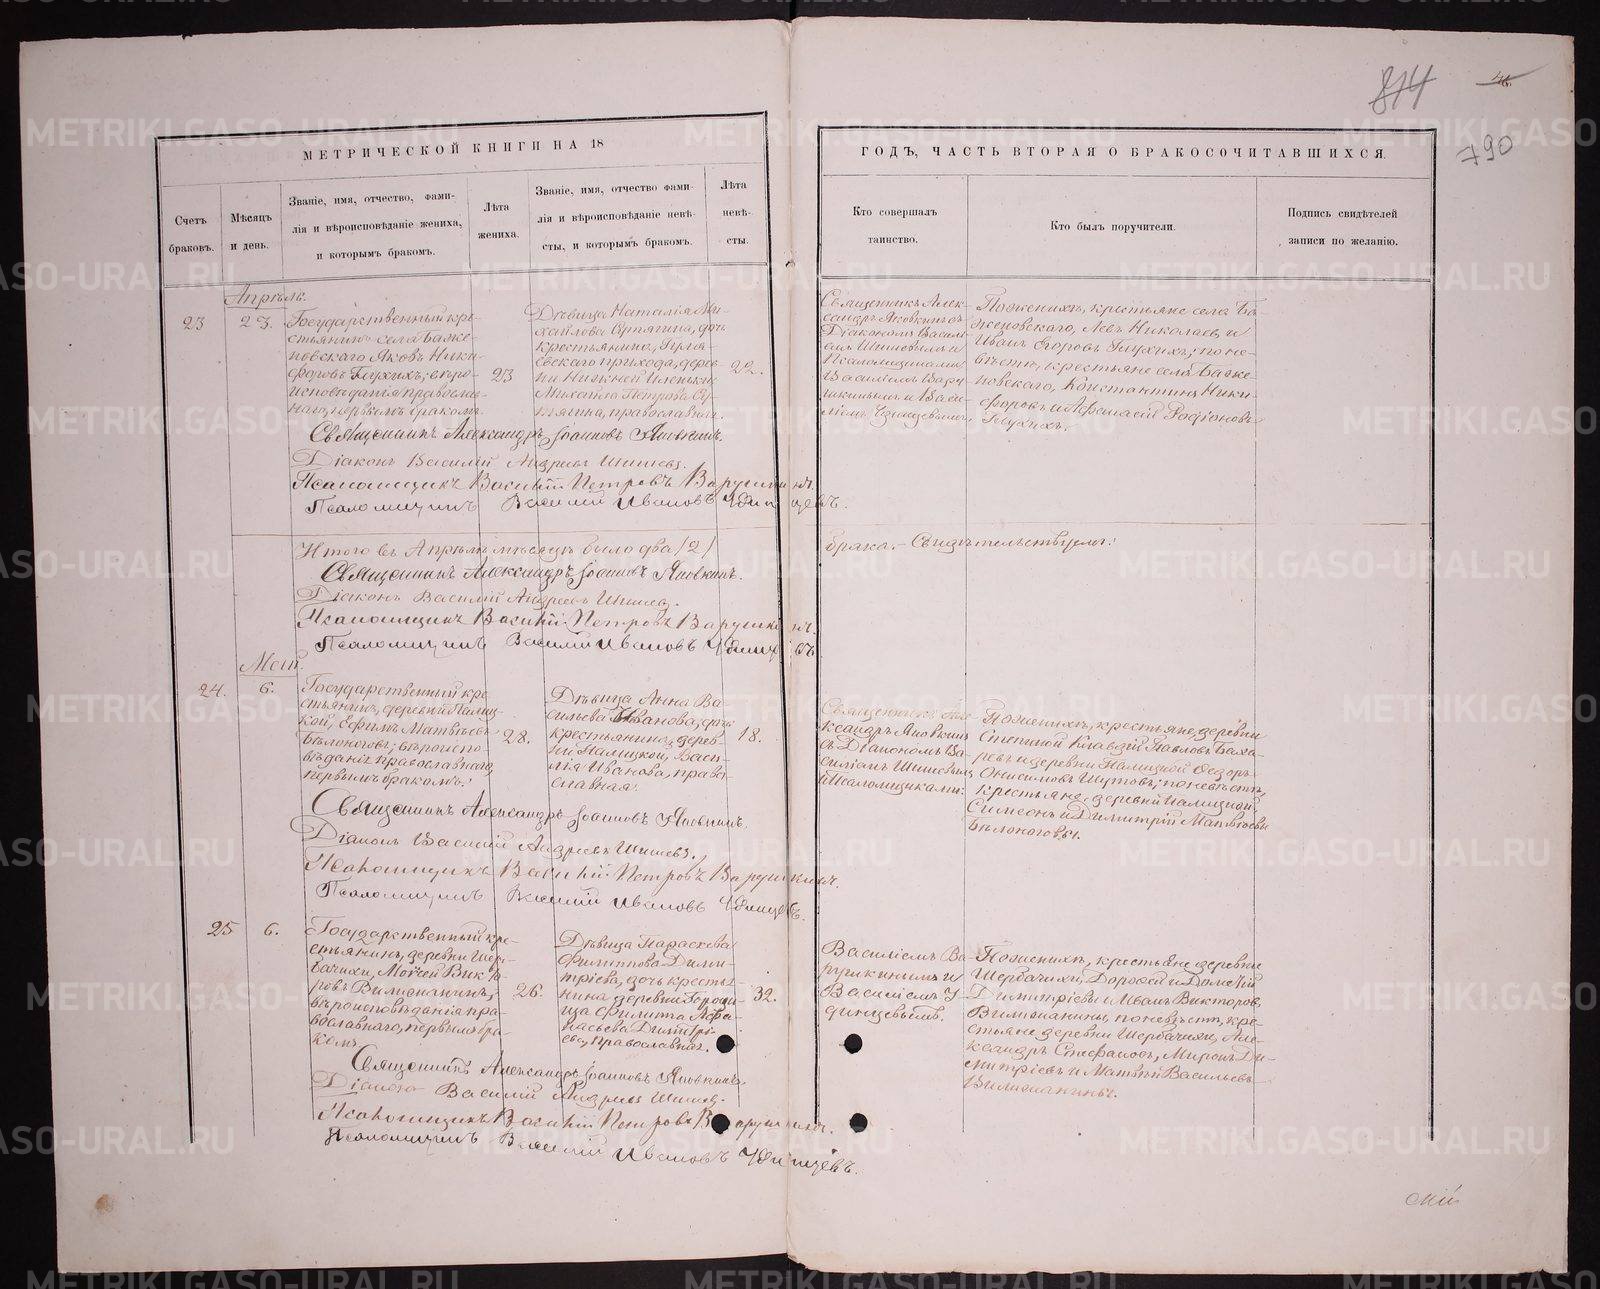 814
46.
790
МЕТРИЧЕСКОЙ КНИГИ НА 18
ГОДЪ, ЧАСТЬ ВТОРАЯ О БРАКОСОЧИТАВШИХСЯ.
Счетъ браковъ.
Мѣсяцъ и день.
Званіе, имя, отчество, фами-
лія и вѣроисповѣданіе жениха,
и которымъ бракомъ.
Лѣта жениха.
Званіе, имя, отчество фами-
лія и вѣроисповѣданіе невѣ-
сты, и которымъ бракомъ.
Лѣта невѣ-
сты.
Кто совершалъ
таинство.
Кто былъ поручители.
Подпись свидѣтелей
записи по желанію.
Апрѣль.
23
23.
Государственный кре-
стьянинъ села Баже-
новскаго Яковъ Ники-
форовъ Глухихъ; вѣро-
исповѣданія православ-
наго, первымъ бракомъ.
23
Дѣвица Наталія Ми-
хайлова
крестьянина,
евскаго прихода, дерев-
ни Нижней Иленьки
Михаила Петрова
православная.
22.
Священникъ Алек-
сандръ Яковкинъ съ
Діакономъ Васи-
ліемъ Шишевымъ и
Псаломщиками
Василіемъ Вару-
шкинымъ и Васи-
ліемъ Удинцевымъ.
По женихѣ, крестьяне села Ба-
женовскаго, Левъ Николаевъ и
Иванъ Егоровъ Глухихъ; по не-
вѣстѣ, крестьяне села Баже-
новскаго, Константинъ Ники-
форовъ и Афанасій Родіоновъ
Глухихъ.
Священникъ Александръ Іоанновъ Яковкинъ.
Діаконъ Василій Андреевъ Шишевъ.
Псаломщикъ Василій Петровъ Варушкинъ.
Псаломщикъ Василій Ивановъ Удинцевъ.
Итого въ Апрѣлѣ мѣсяцѣ было два /2/
брака. – Свидѣтельствуемъ:
Священникъ Александръ Іоанновъ Яковкинъ.
Діаконъ Василій Андреевъ Шишевъ.
Псаломщикъ Василій Петровъ Варушкинъ.
Псаломщикъ Василій Ивановъ Удинцевъ.
Май.
24.
6.
Государственный кре-
стьянинъ, деревни Палиц-
кой, Ефимъ Матвѣевъ
Бѣлоноговъ; вѣроиспо-
вѣданія православнаго,
первымъ бракомъ.
28.
Дѣвица Анна Ва-
сильева Иванова, дочь
крестьянина, дерев-
ни Палицкой, Васи-
лія Иванова, право-
славная.
18.
Священникъ Але-
ксандръ Яковкинъ
съ Діакономъ Ва-
силіемъ Шишевымъ
и Псаломщиками:
По женихѣ, крестьяне, деревни
Степиной Клавдій Павловъ Баха-
ревъ и деревни Палицкой Ѳедоръ
Онисимовъ Шутовъ; по невѣстѣ,
крестьяне, деревни Палицкой,
Симеонъ и Димитрій Матвѣевы
Бѣлоноговы.
Священникъ Александръ Іоанновъ Яковкинъ.
Діаконъ Василій Андреевъ Шишевъ.
Псаломщикъ Василій Петровъ Варушкинъ.
Псаломщикъ Василій Ивановъ Удинцевъ.
25
6.
Государственный кре-
стьянинъ, деревни Щер-
бачихи, Моисей Викто-
ровъ
вѣроисповѣданія пра-
вославнаго, первымъ бра-
комъ.
26.
Дѣвица Параскева
Филиппова Дими-
тріева, дочь крестья-
нина деревни Городи-
ща Филиппа Афа-
насьева Димитрі-
ева, православная.
32.
Василіемъ Ва-
рушкинымъ и
Василіемъ У-
динцевымъ.
По женихѣ, крестьяне деревни
Щербачихи, Дорофей и
Димитріевы и Иванъ Викторовъ
по невѣстѣ, кре-
стьяне деревни Щербачихи, Але-
ксандръ Стефановъ, Миронъ Ди-
митріевъ и Матвѣй Васильевъ
Священникъ Александръ Іоанновъ Яковкинъ.
Діаконъ Василій Андреевъ Шишевъ.
Псаломщикъ Василій Петровъ Варушкинъ.
Псаломщикъ Василій Ивановъ Удинцевъ.
METRIKI.GASO-URAL.RU